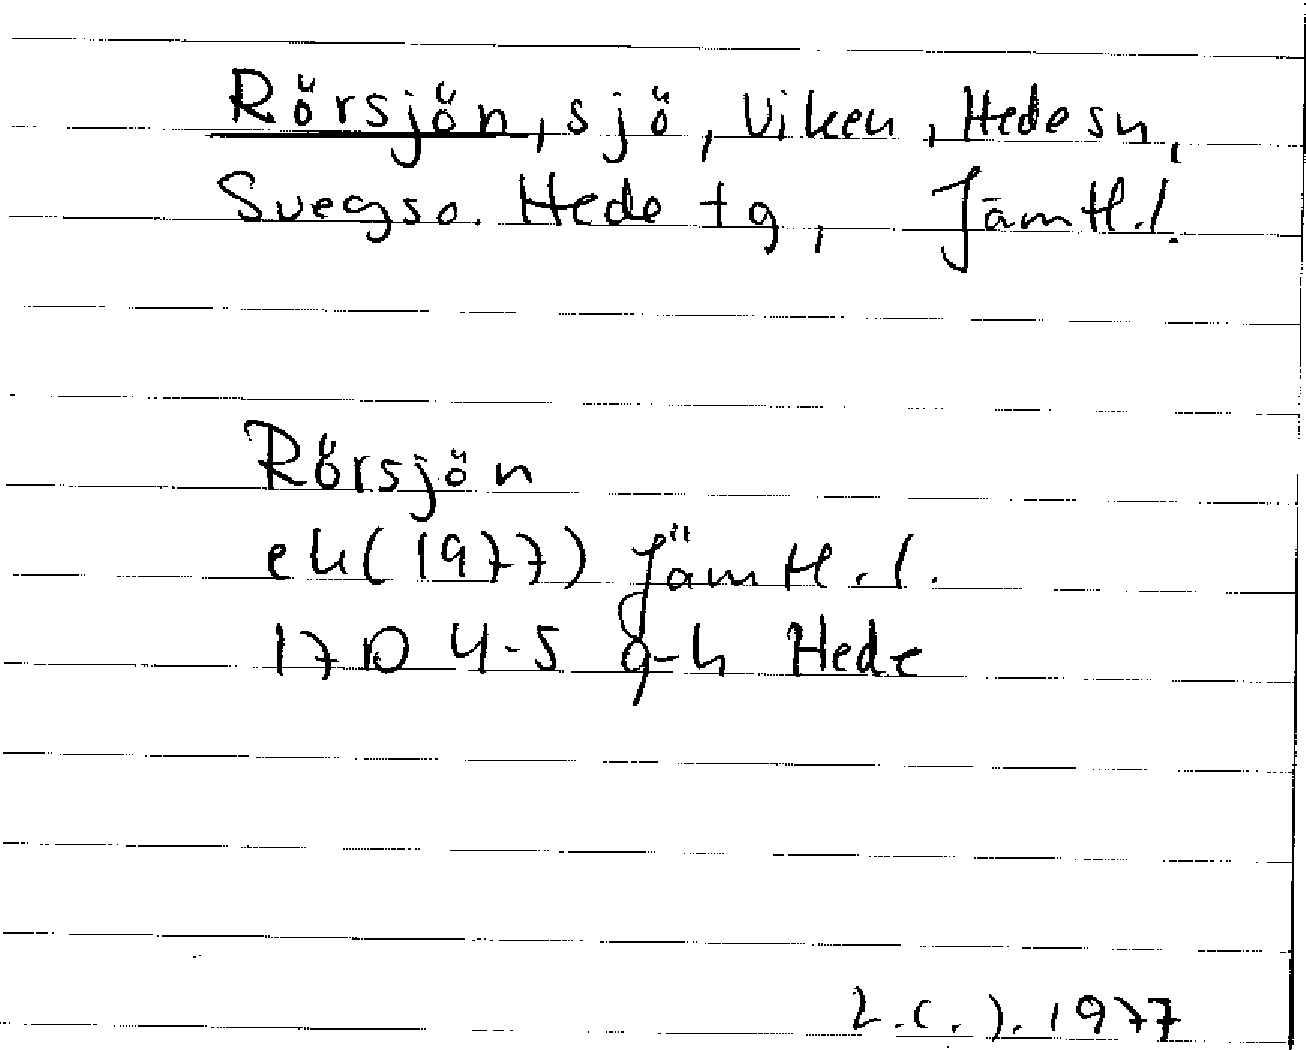 Rörsjön, sjö, Viken, Hede sn,
Svegs o. Hede tg, Jämtl. l.
Rörsjön
ek (1977) Jämtl. l.
17D 4-5 g-h Hede
1977